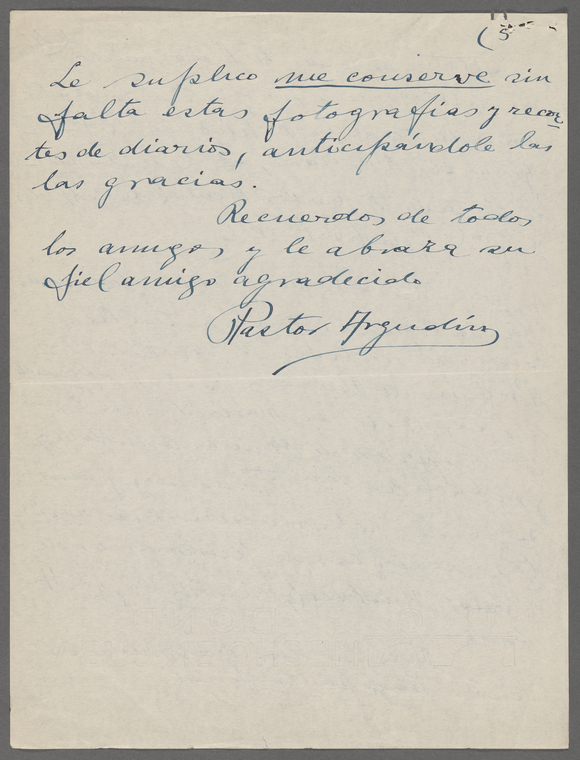 (5
Le suplico me conserve sin
falta estas fotografias y recor-
tes de diarios, anticipándole las
las gracias.
Recuerdos de todos
los amigos y le abraza su
fiel amigo agradecido
Pastor Argudín